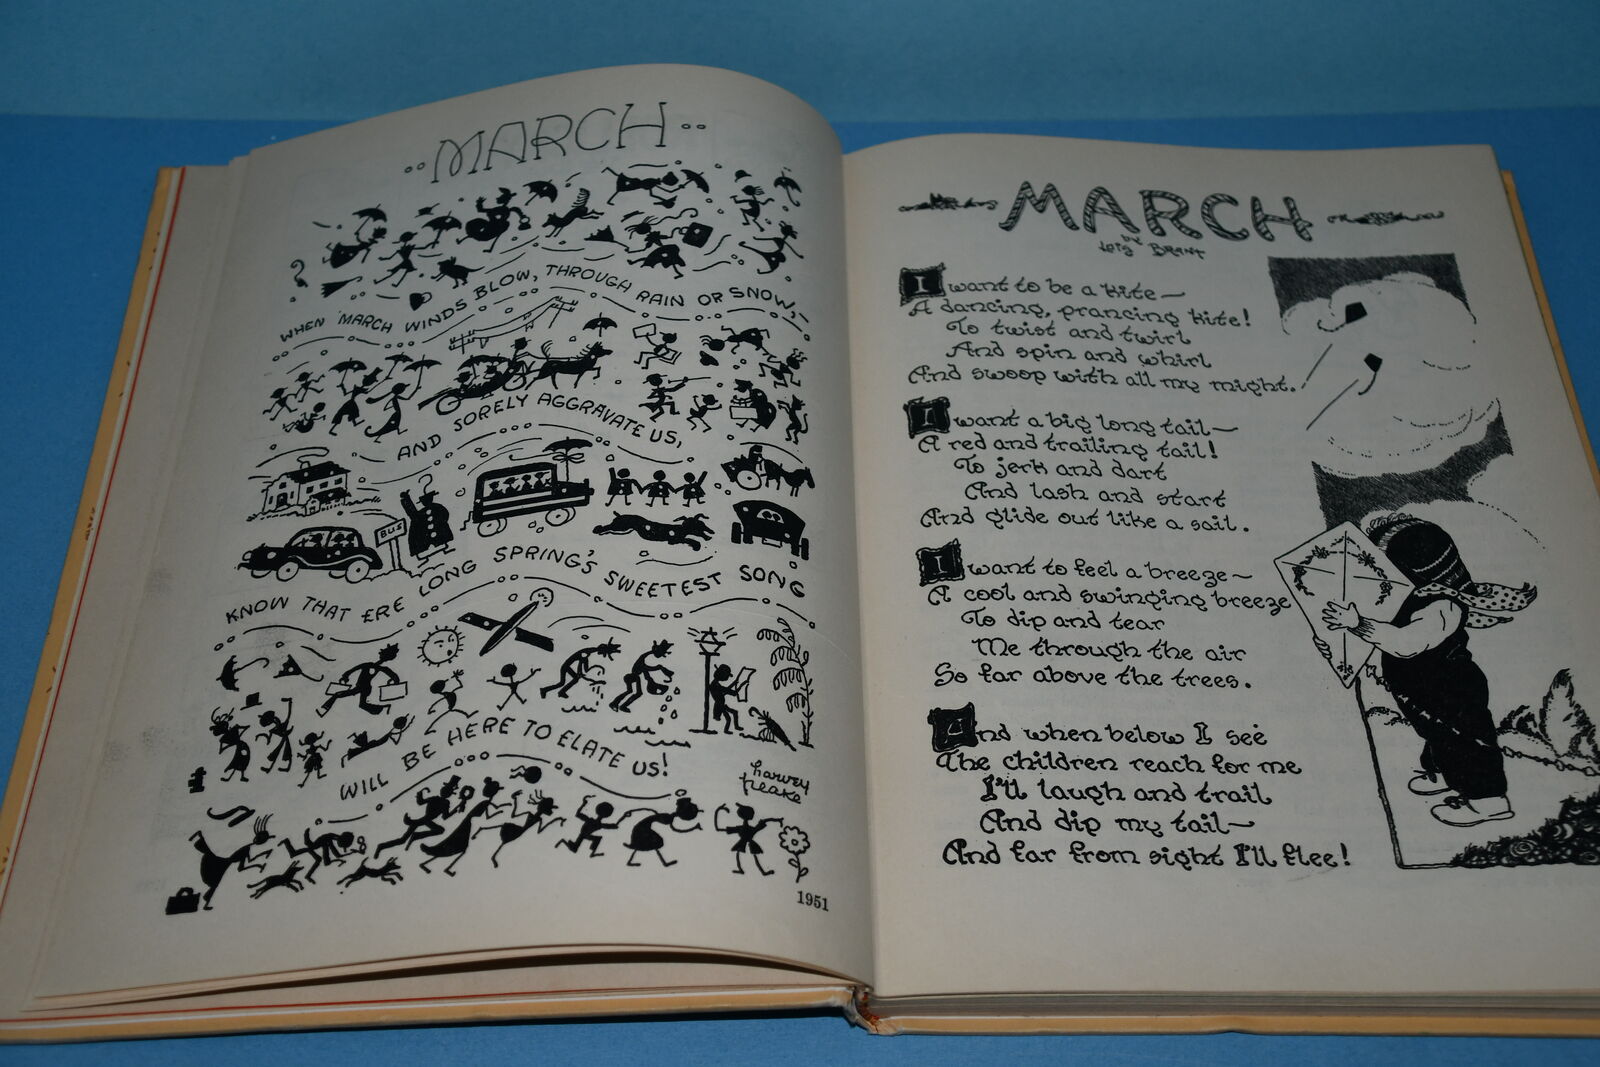 MARCH
WHEN MARCH WINDS BLOW, THROUGH RAIN OR SNOW,
AND SORELY AGGRAVATE US,
BUS
KNOW THAT ERE LONG SPRING'S SWEETEST SONG
WILL BE HERE TO ELATE US!
harvey
peake
1951
MARCH
by
Lois BRANT
I want to be a kite—
A dancing, prancing kite!
To twist and twirl
And spin and whirl
And swoop with all my might.
I want a big long tail—
A red and trailing tail!
To jerk and dart
And lash and start
And glide out like a sail.
I want to feel a breeze—
A cool and swinging breeze
To dip and tear
Me through the air
So far above the trees.
And when below I see
The children reach for me
I'll laugh and trail
And dip my tail—
And far from sight I'll flee!